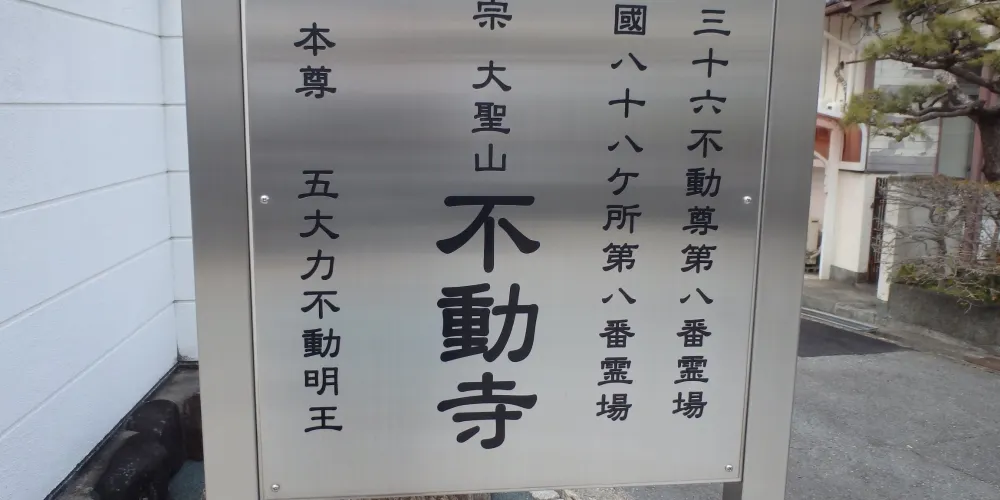 三十六不動尊第八番霊場
國八十八ケ所第八番霊場
宗 大聖山 不動寺
本尊 五大力不動明王